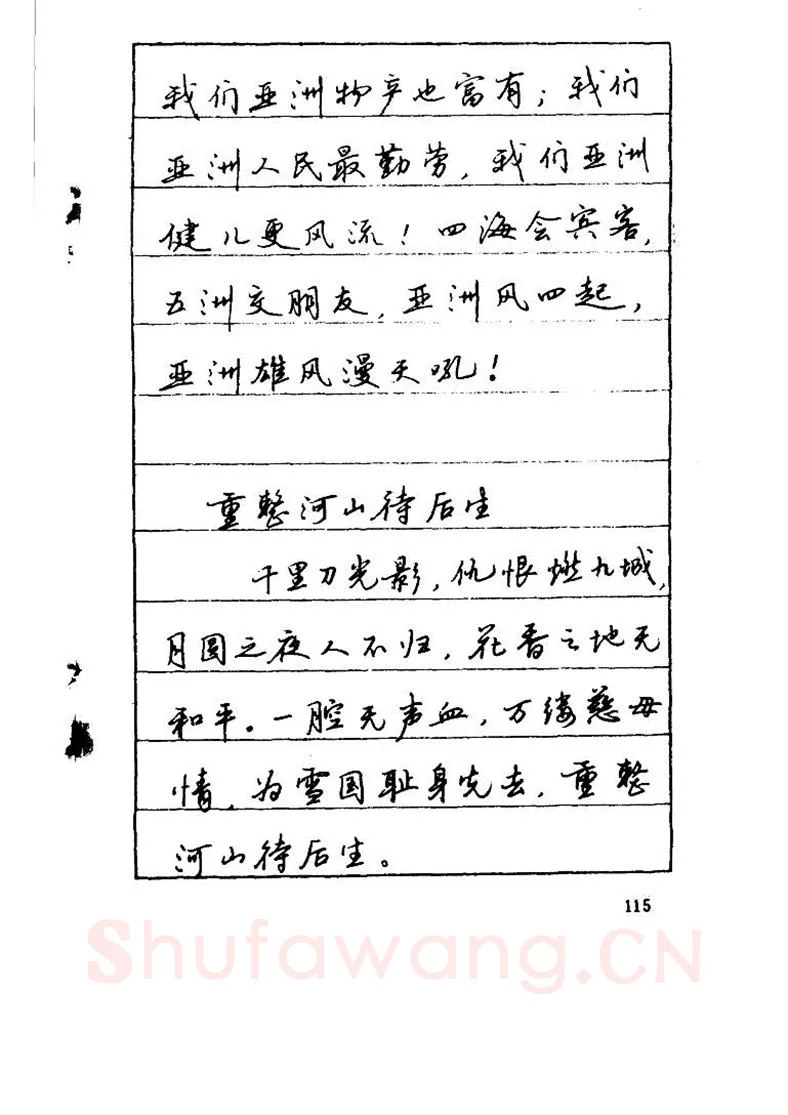 我们亚洲物产也富有；我们
亚洲人民最勤劳，我们亚洲
健儿更风流！四海会宾客，
五洲交朋友，亚洲风四起，
亚洲雄风漫天吼！
重整河山待后生
千里刀光影，仇恨燃九城，
月圆之夜人不归，花香之地无
和平。一腔无声血，万缕慈母
情，为雪国耻身先去，重整
河山待后生。
115
Shufawang.CN